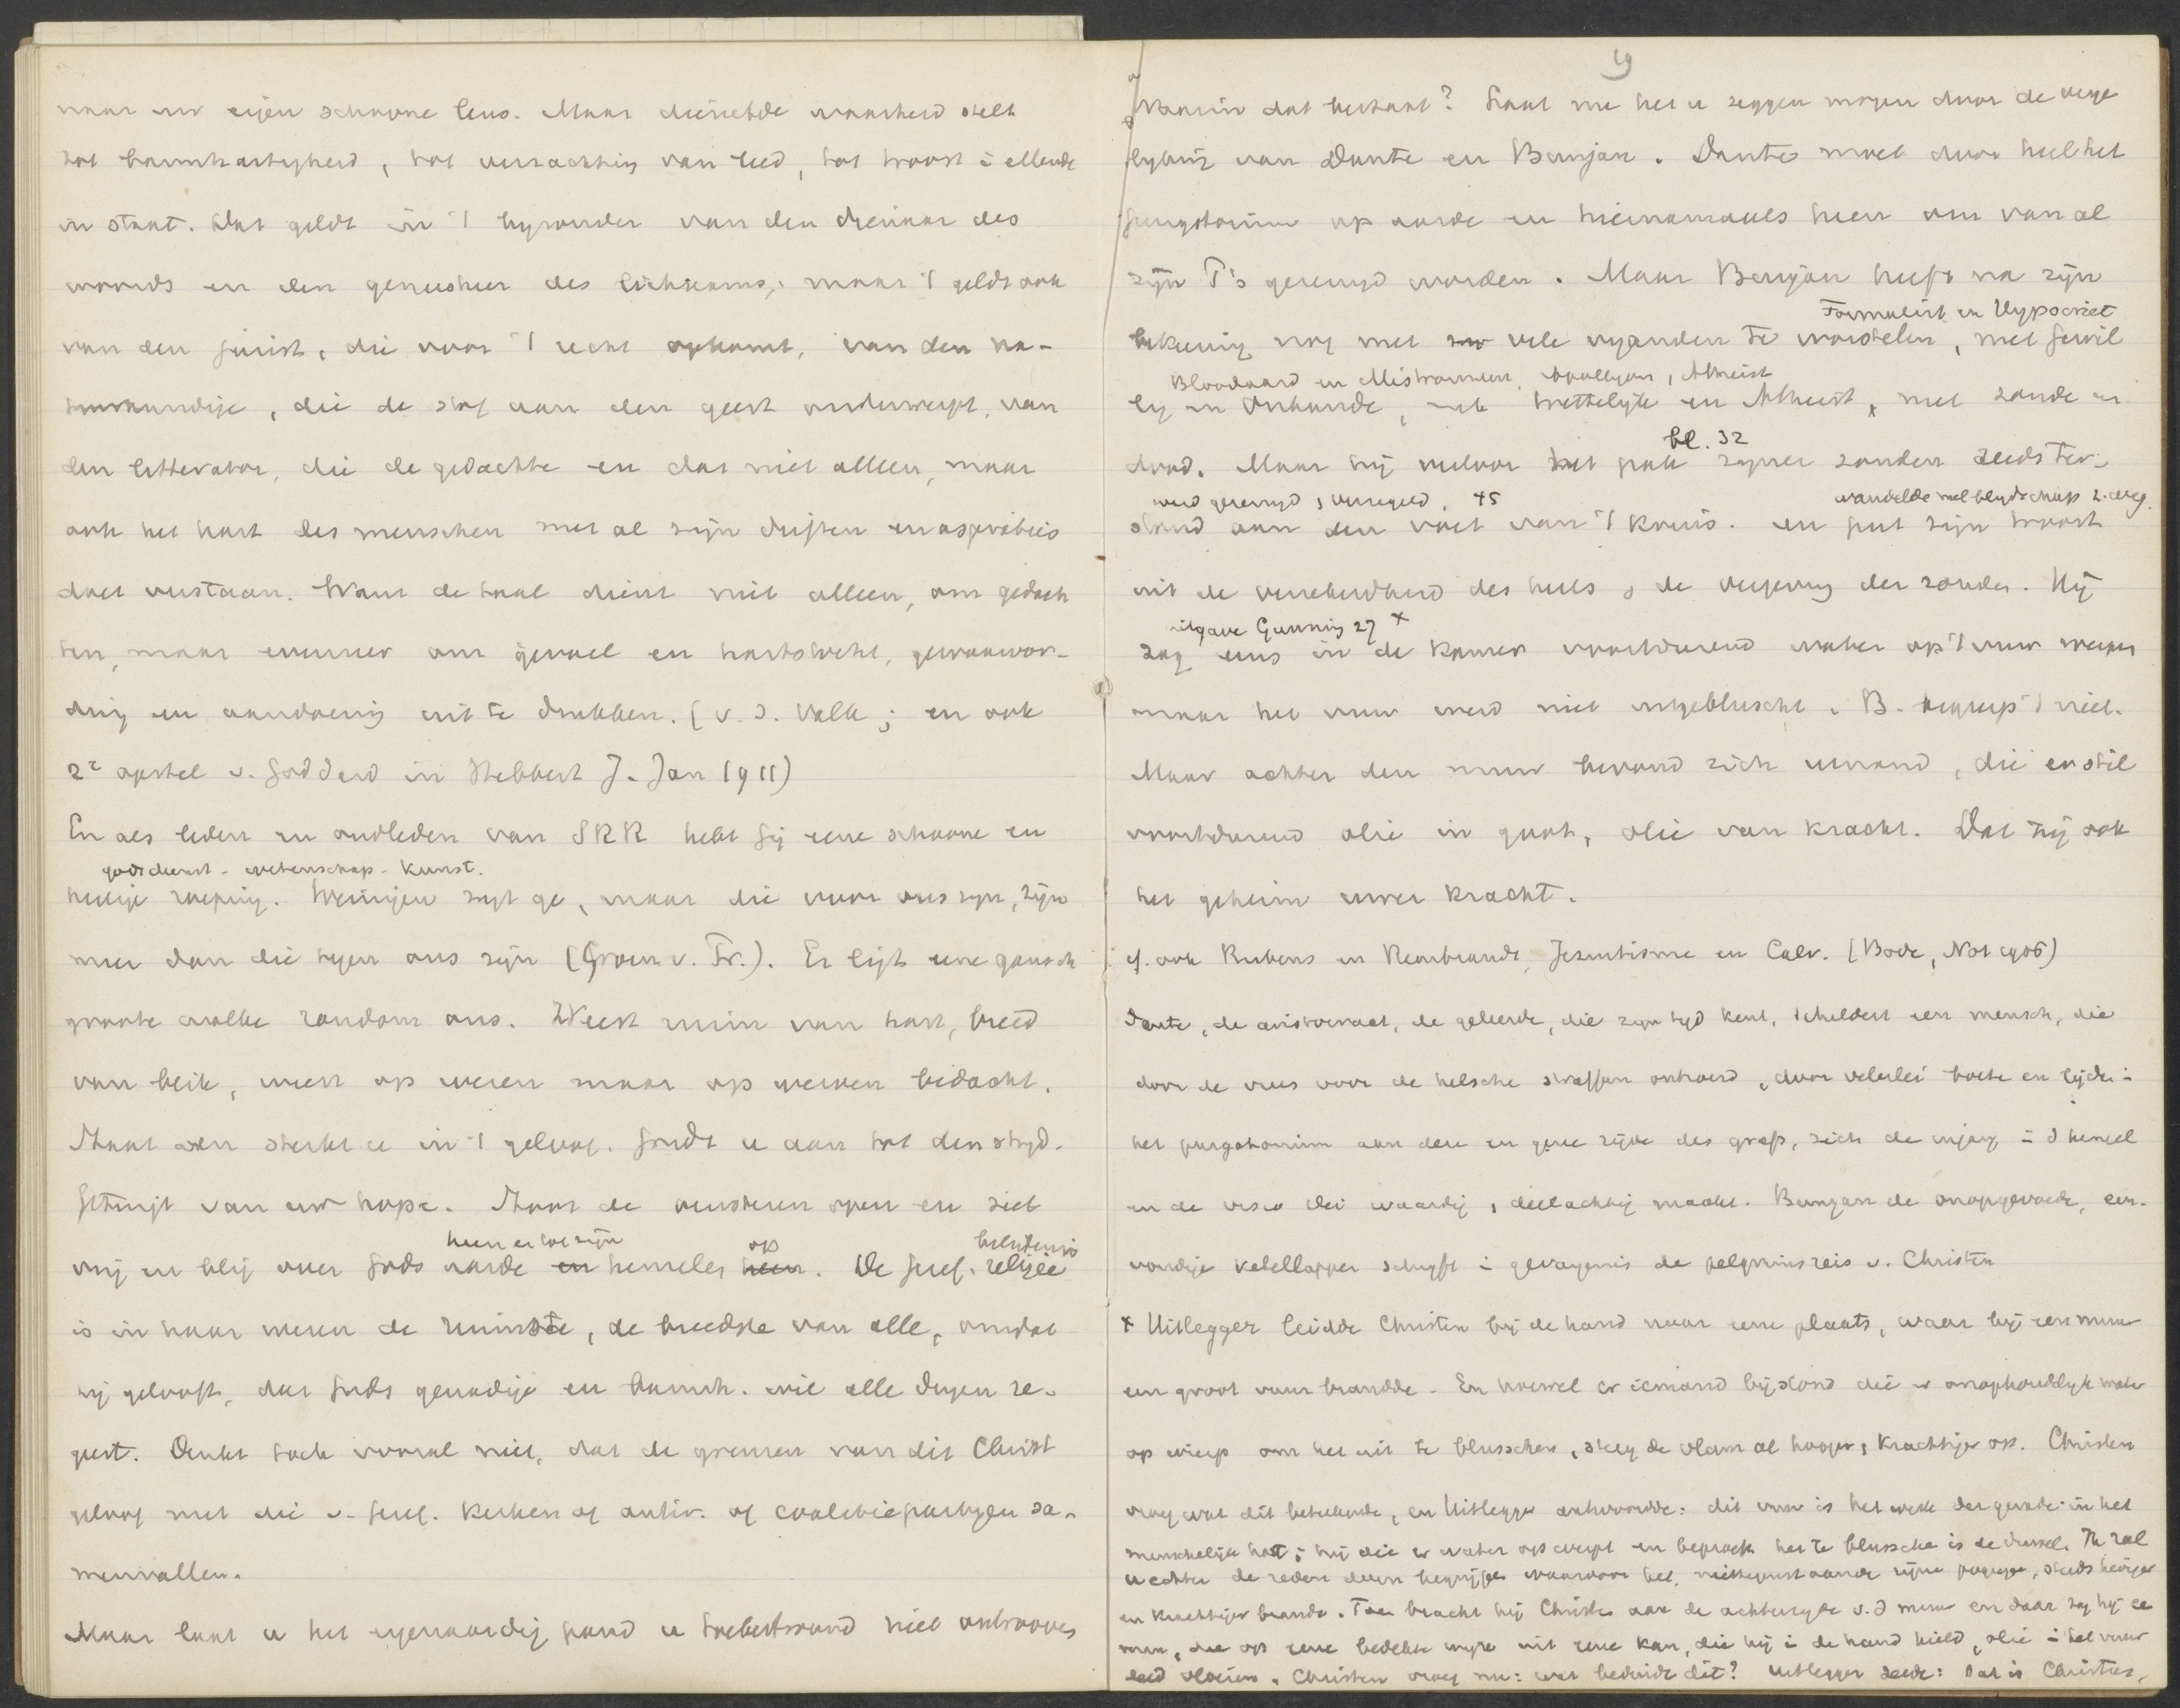 naar uw eigen schoone leus. Maar diezelfde waarheid stelt
tot barmhartigheid, tot verzachting van leed, tot troost i ellende
in staat. Dat geldt in 't byzonder van den dienaar des
woords en den geneesheer des lichaams; maar 't geldt ook
van den jurist, die voor 't recht opkomt, van den na-
tuurkundige, die de stof aan den geest onderwerpt, van
den litterator, die de gedachte en dat niet alleen, maar
ook het hart des menschen met al zijn driften en aspiraties
doet verstaan. Want de taal dient niet alleen, om gedach
ten, maar evenzeer om gevoel en hartstocht, gewaarwor-
ding en aandoening uit te drukken. (v. d. Valk; en ook
2e opstel v. in Hibbert J. Jan 1911)
En als leden en oudleden van SRR hebt gij eene schoone en
godsdienst - wetenschap - kunst.
heilige roeping. Weinigen zyt ge, maar die voor ons zyn, zijn
meer dan die tegen ons zijn (Groen v. Pr.). Er ligt eene gansch
groote wolke rondom ons. Weest ruim van hart, breed
van blik, meer op wezen maar op werken bedacht.
Maar dan sterkt u in 't geloof. Gordt u aan tot den stryd.
Getuigt van uw hope. Maar de vensteren open en ziet
heen es toe zijn op belydenis
vrij en blij over Gods aarde en hemelen heen. De Geref. religie
is in haar wezen de ruimste, de breedste van alle, omdat
zij gelooft, dat Gods genadige en barmh. wil alle dingen re-
geert. Denkt toch vooral niet, dat de grenzen van dit Christ
geloof met die v. Geref. kerken of antir. of coalitiepartyen sa-
menvallen.
Maar laat u het eigenaardig pand u toebetrouwd niet ontrooven
19
Waarin dat bestaat? Laat me het u zeggen mogen door de verge
lyking van Dante en Bunjan. Dante moet door heel het
purgatorium op aarde en hiernamaals heen om van al
zijn P's gereinigd worden. Maar Bunjan heeft na zijn
Formalist en Hypocriet
bekeering nog met vele vyanden te worstelen, met Gewil
Bloodaard en Mistrouwen, Apollyon, Atheist
lig en Onkunde, met Wettelyk en Atheist, met zonde en
bl. 32
dood. Maar hij verloor het pak zyner zonden reeds ter-
werd gereinigd, verzegeld. 45 wandelde met blydschap z. weg
stond aan den voet van 't kruis. en put zijn troost
uit de verzekerdheid des heils, de vergeving der zonden. Hij
uitgave Gunning 27 x
zag eens in de kamer voortdurend water op 't vuur werpen
maar het vuur werd niet uitgebluscht. B. begreep 't niet.
Maar achter den muur bevond zich iemand, die er stil
voortdurend olie in goot, olie van kracht. Dat zij ook
het geheim uwer kracht.
cf. ook Rubens en Rembrandt, Jezuitisme en Calv. (Bode, Nov 1906)
Dante, de aristocraat, de geleerde, die zyn tyd kent, schildert een mensch, die
door de vrees voor de helsche straffen ontroerd, door velerlei boete en lijden i
het purgatorium aan deze en gene zijde des grafs, zich de ingang i d hemel
en de visio Dei waardig, deelachtig maakt. Bunjan de onopgevoede, een-
voudige ketellapper schryft i gevangenis de pelgrimsreis v. Christen
x Uitlegger leidde Christen bij de hand naar eene plaats, waar bij een muur
een groot vuur brandde. En hoewel er iemand bijstond die er onophoudelyk water
op wierp om het uit te blusschen, steeg de vlam al hooger, krachtiger op. Christen
vroeg wat dit beteekende, en Uitlegger antwoordde: dit vuur is het werk der genade in het
menschelijk hart; hij die er water op werpt en beproeft het te blusschen is de duivel. Ik zal
u echter de reden doen begrijpen waarom het, niettegenstaande zijne pogingen, steeds heviger
en krachtiger brandt. Toen bracht hij Christen aan de achterzijde v. d muur en daar zag hij ee
man, die op eene bedekte wyze uit eene kan, die hij i de hand hield, olie i het vuur
deed vloeien. Christen vroeg nu: wat beduidt dit? Uitlegger zeide: Dat is Christus,